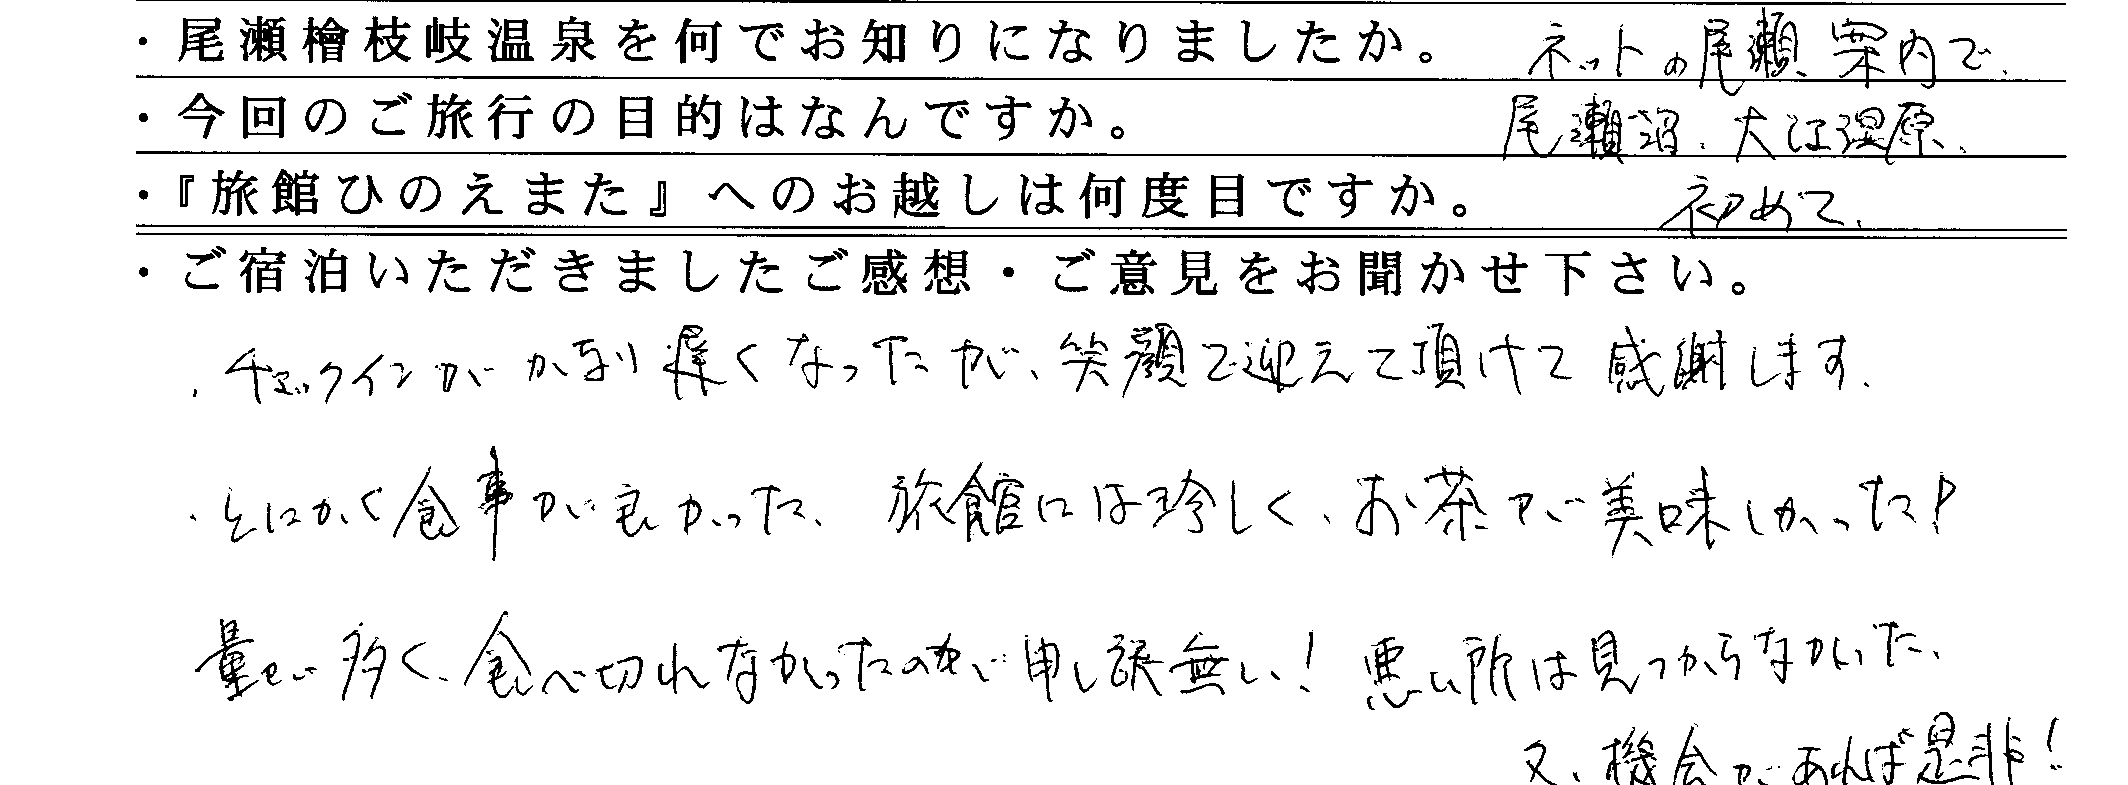 ・尾瀬檜枝岐温泉を何でお知りになりましたか。 ネットの尾瀬案内で、
・今回のご旅行の目的はなんですか。 尾瀬沼、大江湿原、
・『旅館ひのえまた』へのお越しは何度目ですか。 初めて、
・ご宿泊いただきましたご感想・ご意見をお聞かせ下さい。
・チェックインがかなり遅くなったが、笑顔で迎えて頂けて感謝します。
・とにかく食事が良かった、旅館には珍しく、お茶が美味しかった!
量が多く、食べ切れなかったのが申し訳無い!悪い所は見つからなかった、
又、機会があれば是非!